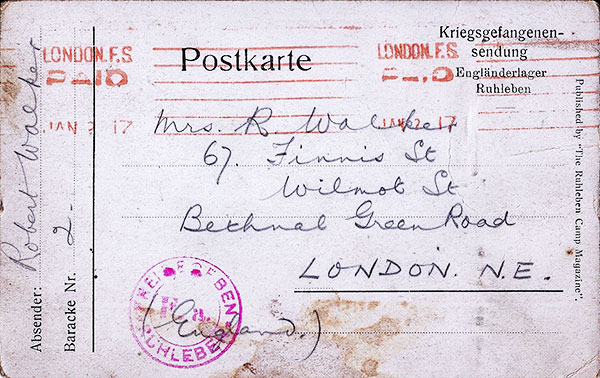 LONDON. F.S.
PAID
JAN 2 17
Postkarte
LONDON. F.S.
PAID
JAN 2 17
Kriegsgefangenen-
sendung
Engländerlager
Ruhleben
Mrs. R Walker
67. Finnis St
Wilmot St
Bethnal Green Road
LONDON. N.E.
(England.)
FREIGEGEBEN
RUHLEBEN
Absender: Robert Walker
Baracke Nr. 2.
Published by "The Ruhleben Camp Magazine".